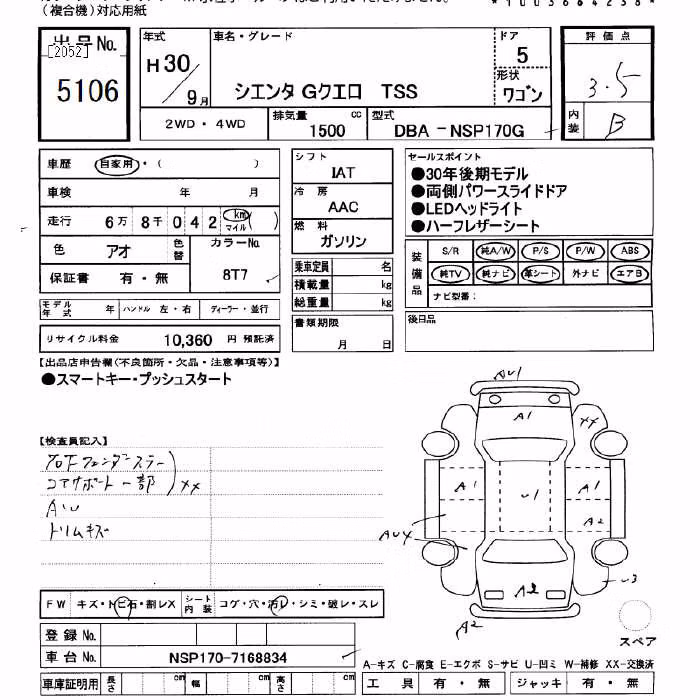 （複合機）対応用紙
*1003684238*
出品No.
[2052]
5106
年式
H30／9月
車名・グレード
シエンタ Gクエロ TSS
ドア
5
形状
ワゴン
評価点
3.5
内装
B
2WD・4WD
排気量
1500 cc
型式
DBA-NSP170G
車歴 自家用・（ ）
車検 年 月
走行 6万8千042 km マイル( )
色 アオ
色替
カラーNo.
8T7
保証書 有・無
モデル年式 年 ハンドル 左・右 ディーラー・並行
リサイクル料金 10,360 円 預託済
シフト
IAT
冷房
AAC
燃料
ガソリン
乗車定員 名
積載量 kg
総重量 kg
書類期限
月 日
セールスポイント
●30年後期モデル
●両側パワースライドドア
●LEDヘッドライト
●ハーフレザーシート
装備品
S/R 純A/W P/S P/W ABS
純TV 純ナビ 革シート 外ナビ エアB
ナビ型番：
後日品
【出品店申告欄(不良箇所・欠品・注意事項等)】
●スマートキー・プッシュスタート
【検査員記入】
コアサポート一部 XX
AU
トリムキズ
AU1
A1
XX
A1
U1
A1
A2
AU4
A2
U3
A2
スペア
FW キズ・トビ石・割レX
シート内装 コゲ・穴・汚レ・シミ・破レ・スレ
登録No.
車台No. NSP170-7168834
車庫証明用 長さ cm 幅 cm 高さ cm
A-キズ C-腐食 E-エクボ S-サビ U-凹ミ W-補修 XX-交換済
工具 有・無 ジャッキ 有・無